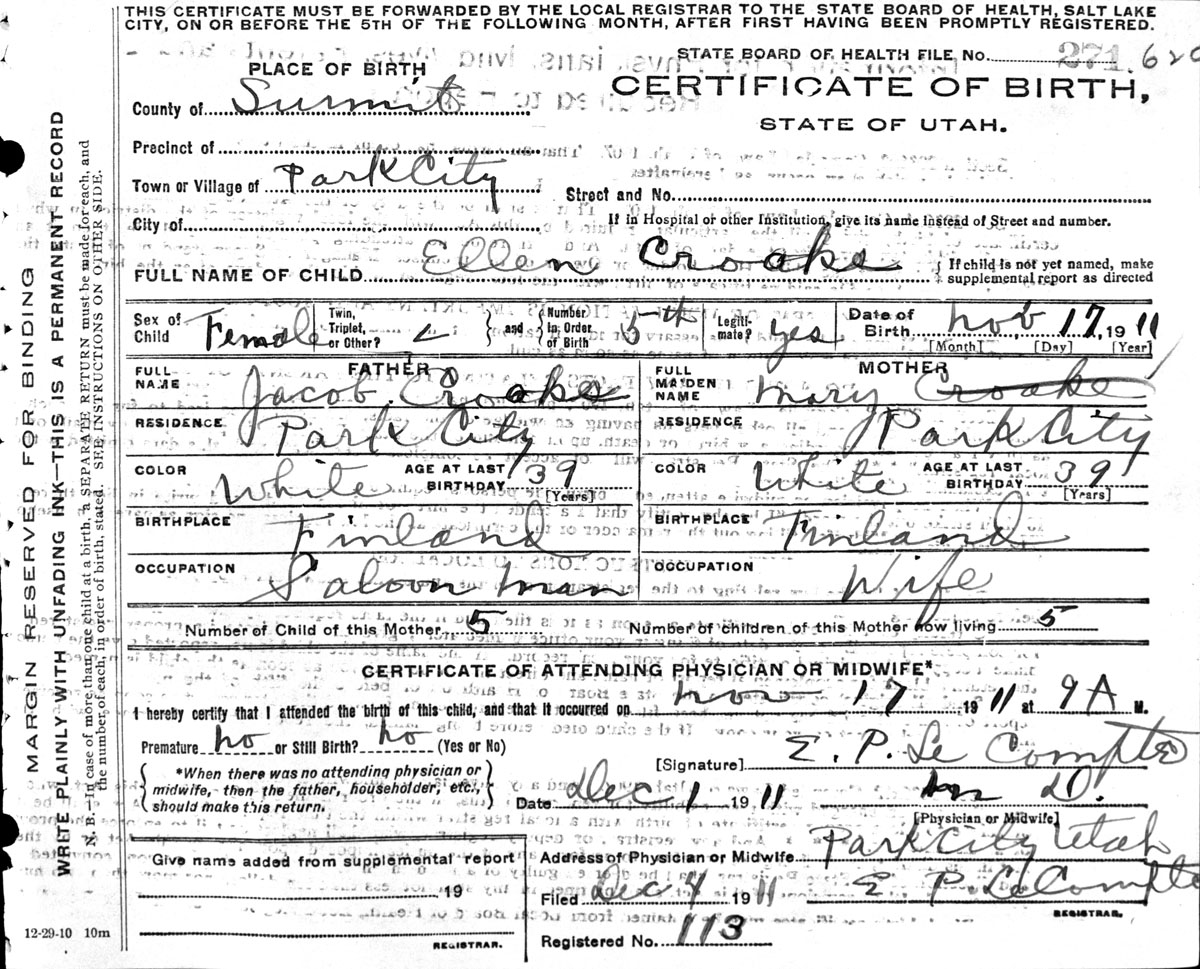 THIS CERTIFICATE MUST BE FORWARDED BY THE LOCAL REGISTRAR TO THE STATE BOARD OF HEALTH, SALT LAKE
CITY, ON OR BEFORE THE 5TH OF THE FOLLOWING MONTH, AFTER FIRST HAVING BEEN PROMPTLY REGISTERED.
STATE BOARD OF HEALTH FILE No. 271.620
PLACE OF BIRTH
CERTIFICATE OF BIRTH,
STATE OF UTAH.
County of Summit
Precinct of
Town or Village of Park City
Street and No.
City of
If in Hospital or other Institution, give its name instead of Street and number.
FULL NAME OF CHILD Ellen Croake
If child is not yet named, make
supplemental report as directed
Sex of Child Female
Twin, Triplet, or Other?
and Number in Order of Birth 5th
Legitimate? yes
Date of Birth, Nov 17, 1911
[Month] [Day] [Year]
FATHER
FULL NAME Jacob Croake
RESIDENCE Park City
COLOR White AGE AT LAST BIRTHDAY 39
[Years]
BIRTHPLACE Finland
OCCUPATION Saloon man
MOTHER
FULL MAIDEN NAME Mary Croake
RESIDENCE Park City
COLOR White AGE AT LAST BIRTHDAY 39
[Years]
BIRTHPLACE Finland
OCCUPATION Wife
Number of Child of this Mother 5 Number of children of this Mother now living 5
CERTIFICATE OF ATTENDING PHYSICIAN OR MIDWIFE*
I hereby certify that I attended the birth of this child, and that it occurred on Nov 17 1911 at 9 A M.
Premature no or Still Birth? no (Yes or No)
[Signature] E. P. Le Compte
*When there was no attending physician or
midwife, then the father, householder, etc.,
should make this return.
Date Dec 1 1911 M D.
[Physician or Midwife]
Give name added from supplemental report
19
REGISTRAR.
Address of Physician or Midwife Park City Utah
Filed Dec 4 1911 E P. Le Compte
REGISTRAR.
Registered No. 113
12-29-10 10m
MARGIN RESERVED FOR BINDING
WRITE PLAINLY WITH UNFADING INK—THIS IS A PERMANENT RECORD
N. B.—In case of more than one child at a birth, a SEPARATE RETURN must be made for each, and
the number of each, in order of birth, stated. SEE INSTRUCTIONS ON OTHER SIDE.